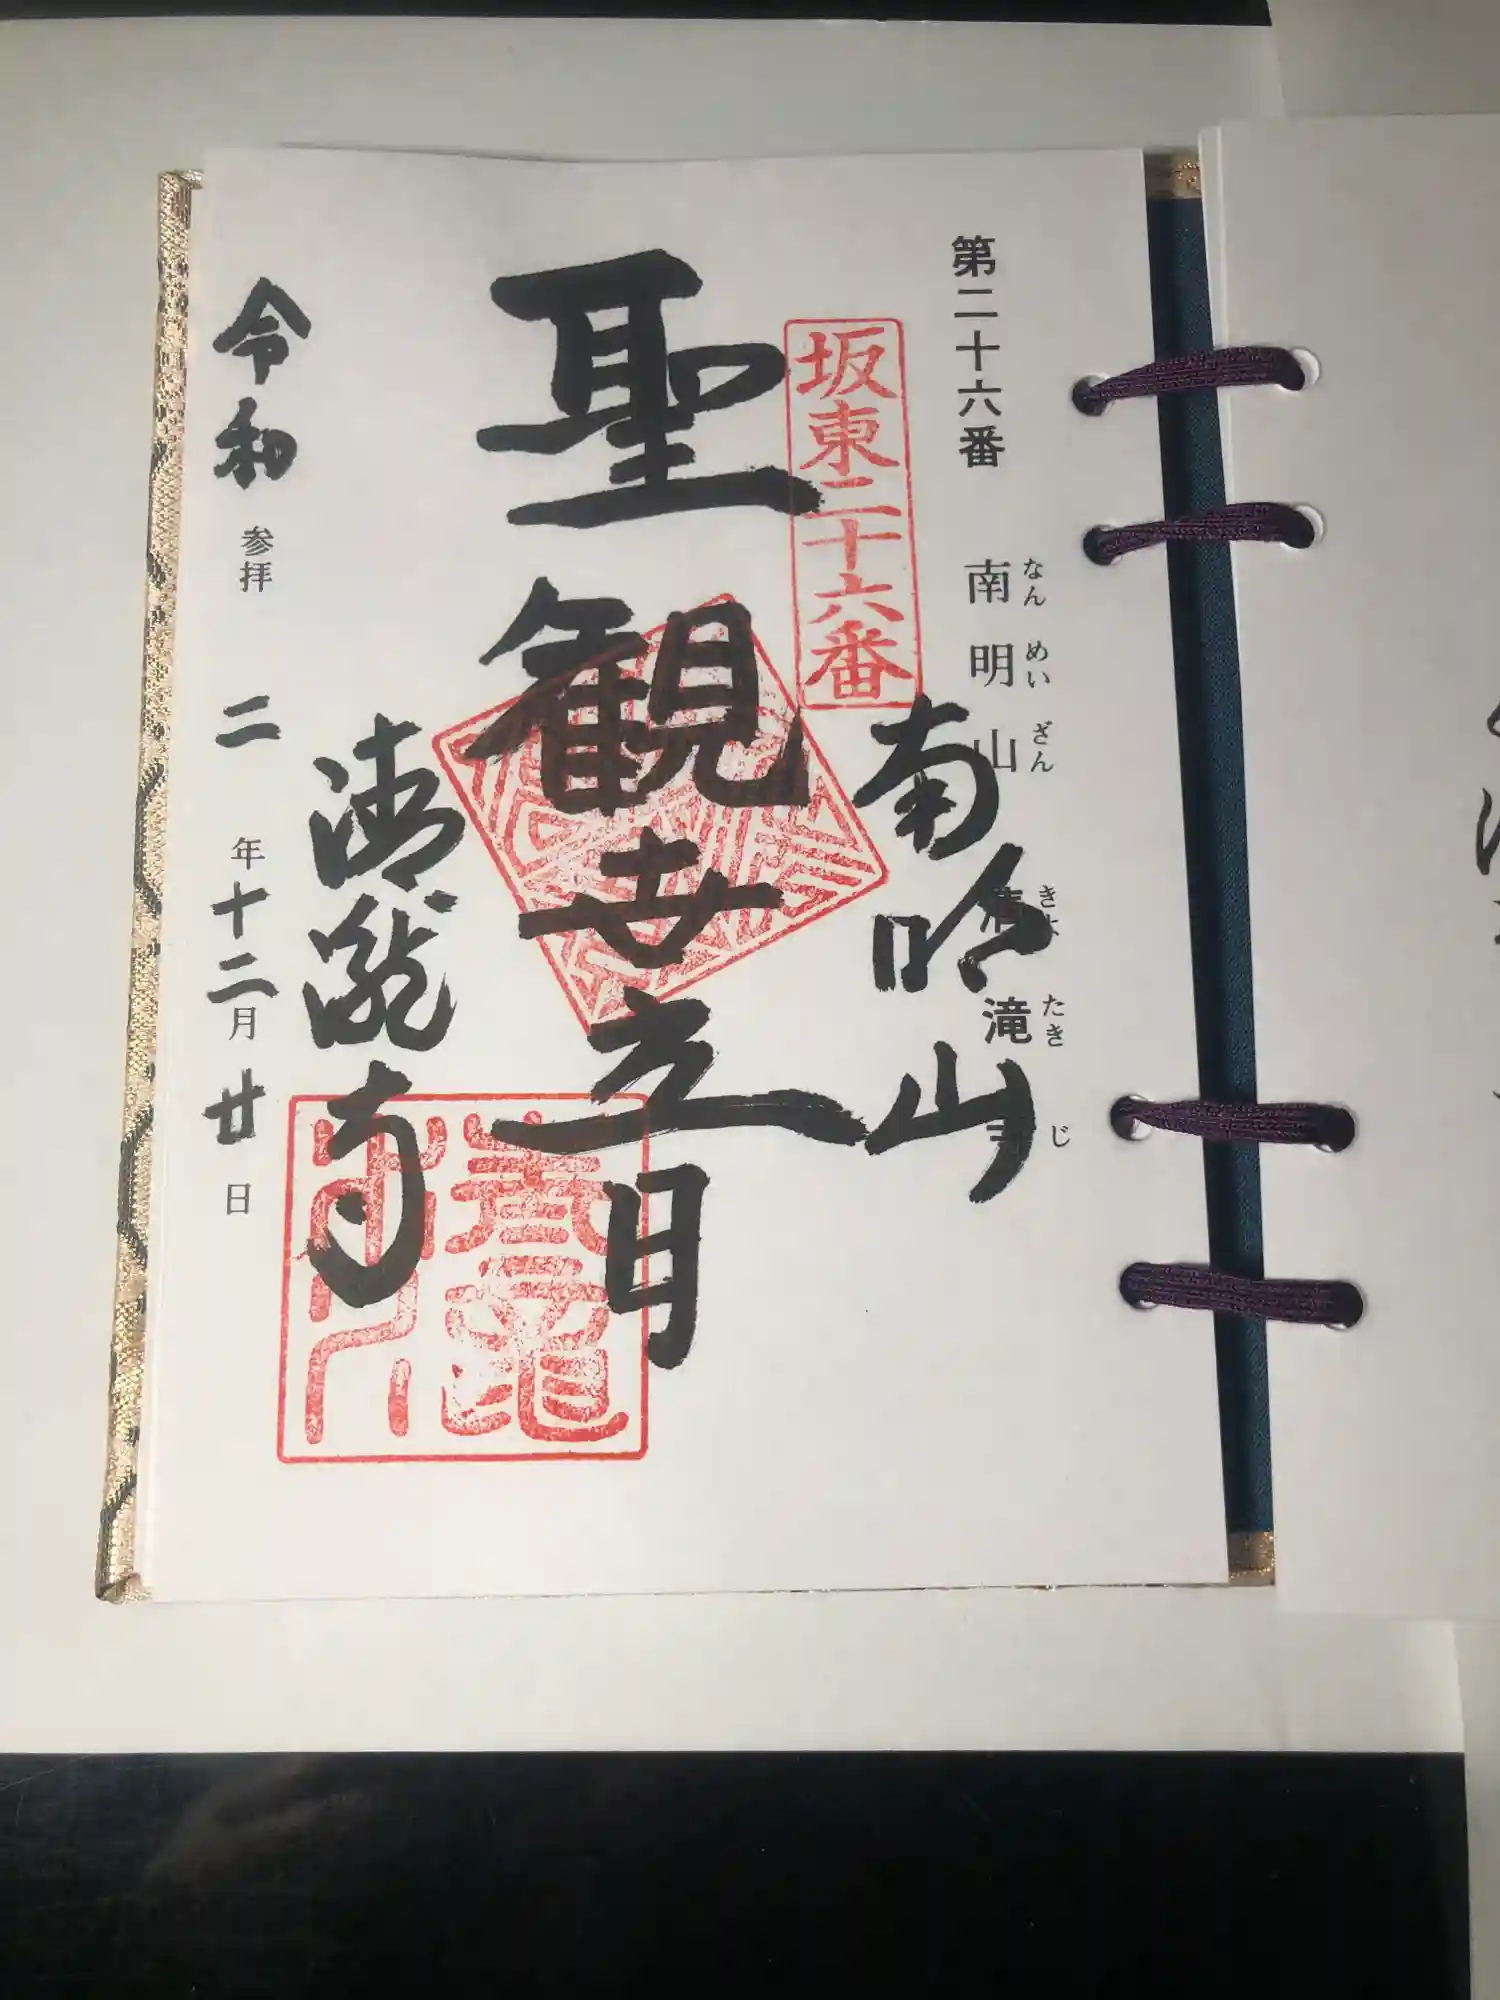 第二十六番 南明山 清滝寺
なんめいざん きよたき じ
坂東二十六番
南明山
聖観世音
清瀧寺
令和 参拝 二年十二月廿日